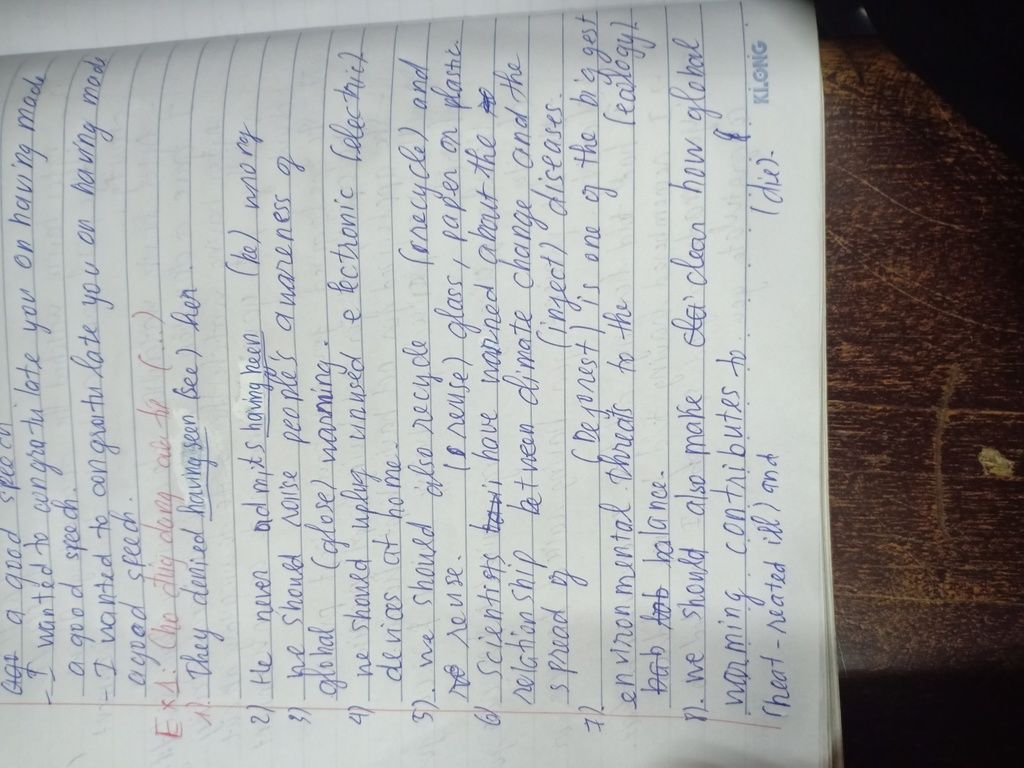 a good speech
- I wanted to congratulate you on having made
a good speech.
- I wanted to congratulate you on having made
a good speech.
Ex1: Cho đúng dạng của từ (...)
1) They denied having seen (see) her.
2) He never admits having been (be) wrong
3) We should raise people's awareness of
global (glose) warming.
4) We should unplug unused electronic (electric)
devices at home.
5) we should also recycle (orecycle) and
reuse. (o reuse) glass, paper or plastic.
6) Scientists have warned about the
relationship between climate change and the
spread of (inject) diseases.
7) (Deforest) is one of the biggest
environmental threats to the (ecology)
balance.
8) We should also make clear how global
warming contributes to (die).
(heat-reated ill) and
KLONG